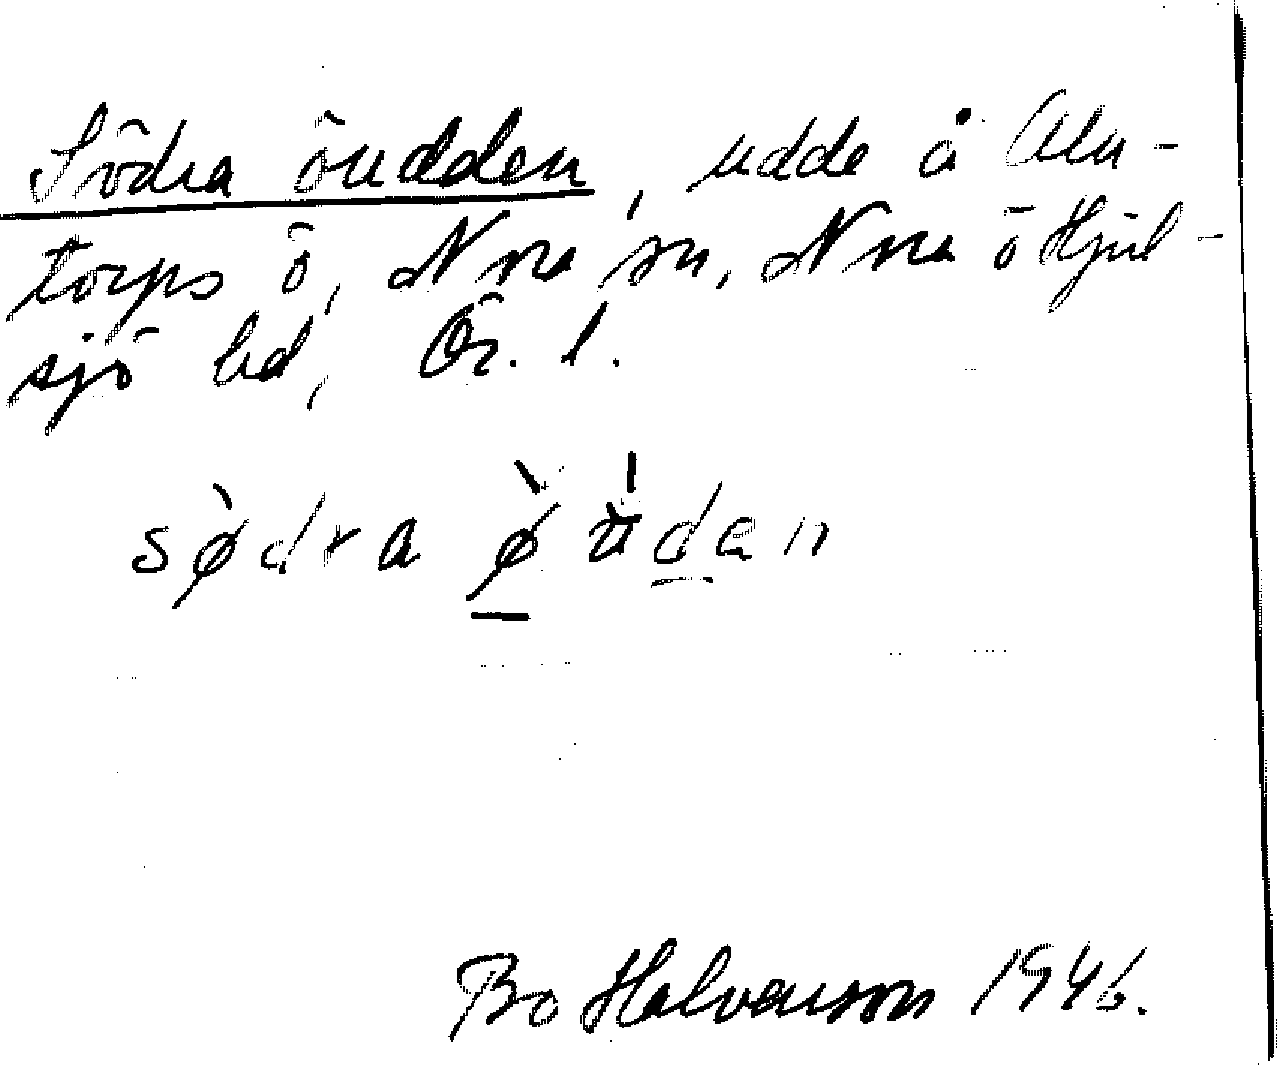 Södra öudden, udde å Ala-
torps ö, Nora sn, Nora o Hjul-
sjö bd, Ör. l.
sø̀dra ø̀ ùden
Bo Halvarson 1946.